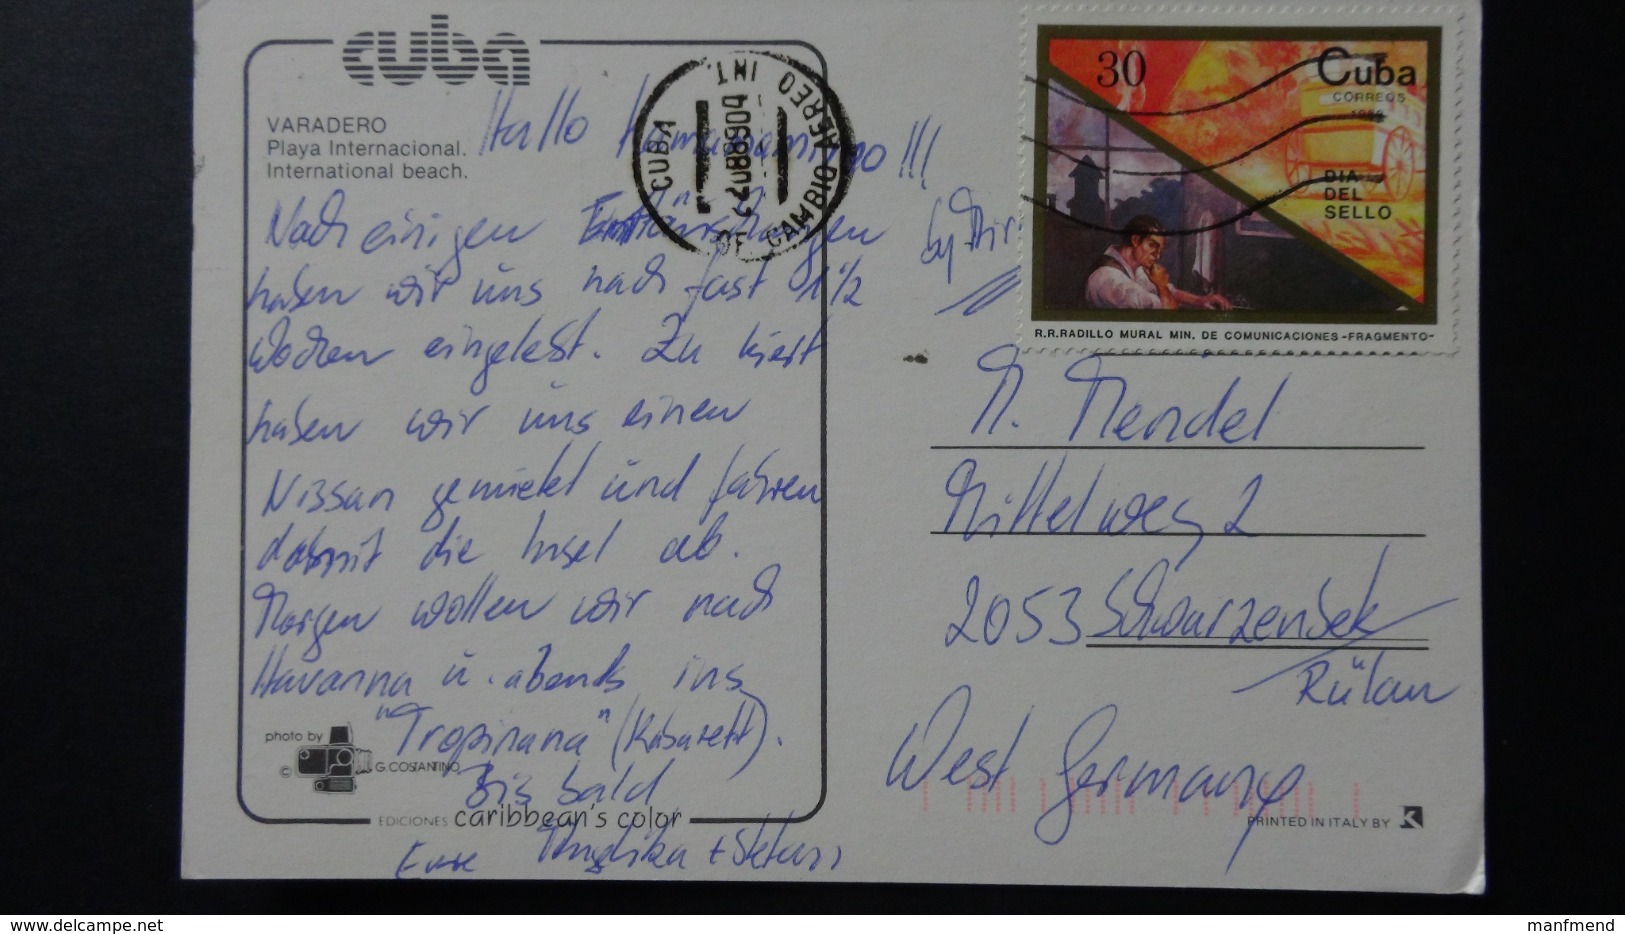 cuba
VARADERO
Playa Internacional.
International beach.
Hallo
!!!
Nach einigen
haben wir uns nach fast 1 1/2
Wochen eingelebt. Zu
haben wir uns einen
Nissan gemietet und fahren
damit die Insel ab.
Morgen wollen wir nach
Havanna u. abends ins
"Tropinana" (Kabarett).
Bis bald
Eure + Stefan
photo by
© G. COSTANTINO
EDICIONES caribbean's color
CUBA
CAMBIO AEREO INT.
30
Cuba
CORREOS
DIA
DEL
SELLO
R.R.RADILLO MURAL MIN. DE COMUNICACIONES -FRAGMENTO-
M. Mendel
Mittelweg 2
2053 Schwarzenbek
Rülau
West Germany
PRINTED IN ITALY BY K
delcampe.net
manfmend